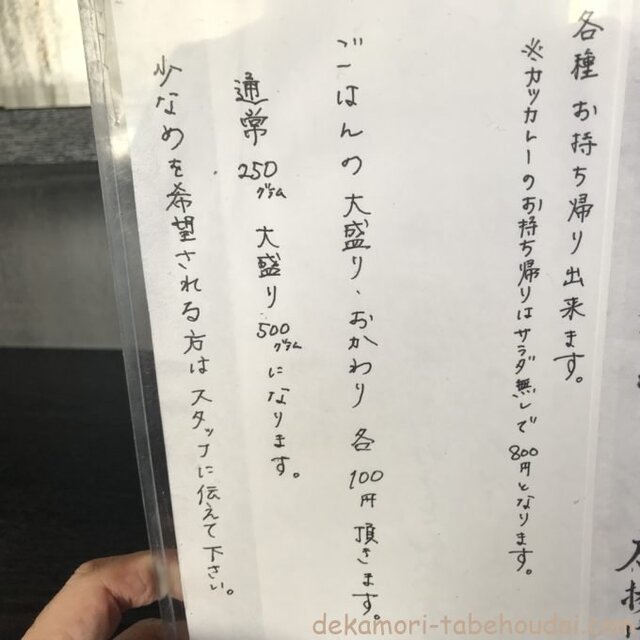 各種お持ち帰り出来ます。
※カツカレーのお持ち帰りはサラダ無しで800円となります。
ごはんの大盛り、おかわり各100円頂きます。
通常250グラム 大盛り500グラムになります。
少なめを希望される方はスタッフに伝えて下さい。
dekamori-tabehoudai.com